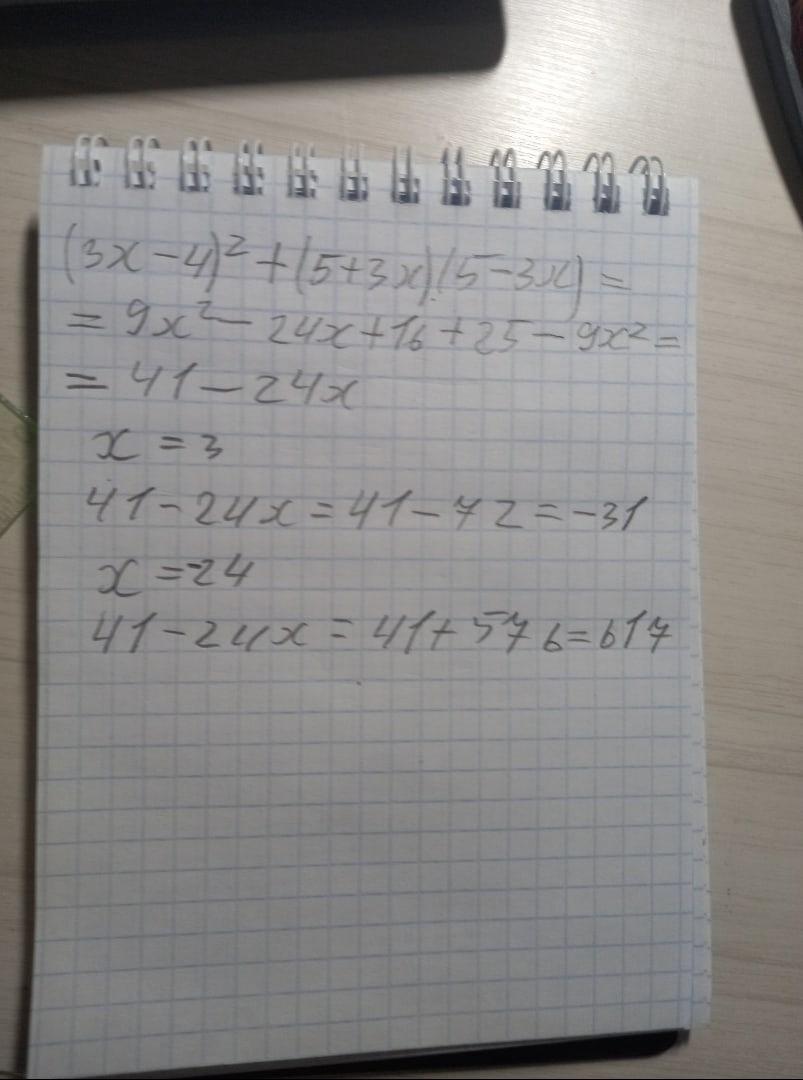 (3x-4)²+(5+3x)(5-3x)=
=9x²-24x+16+25-9x²=
=41-24x
x=3
41-24x=41-72=-31
x=-24
41-24x=41+576=617